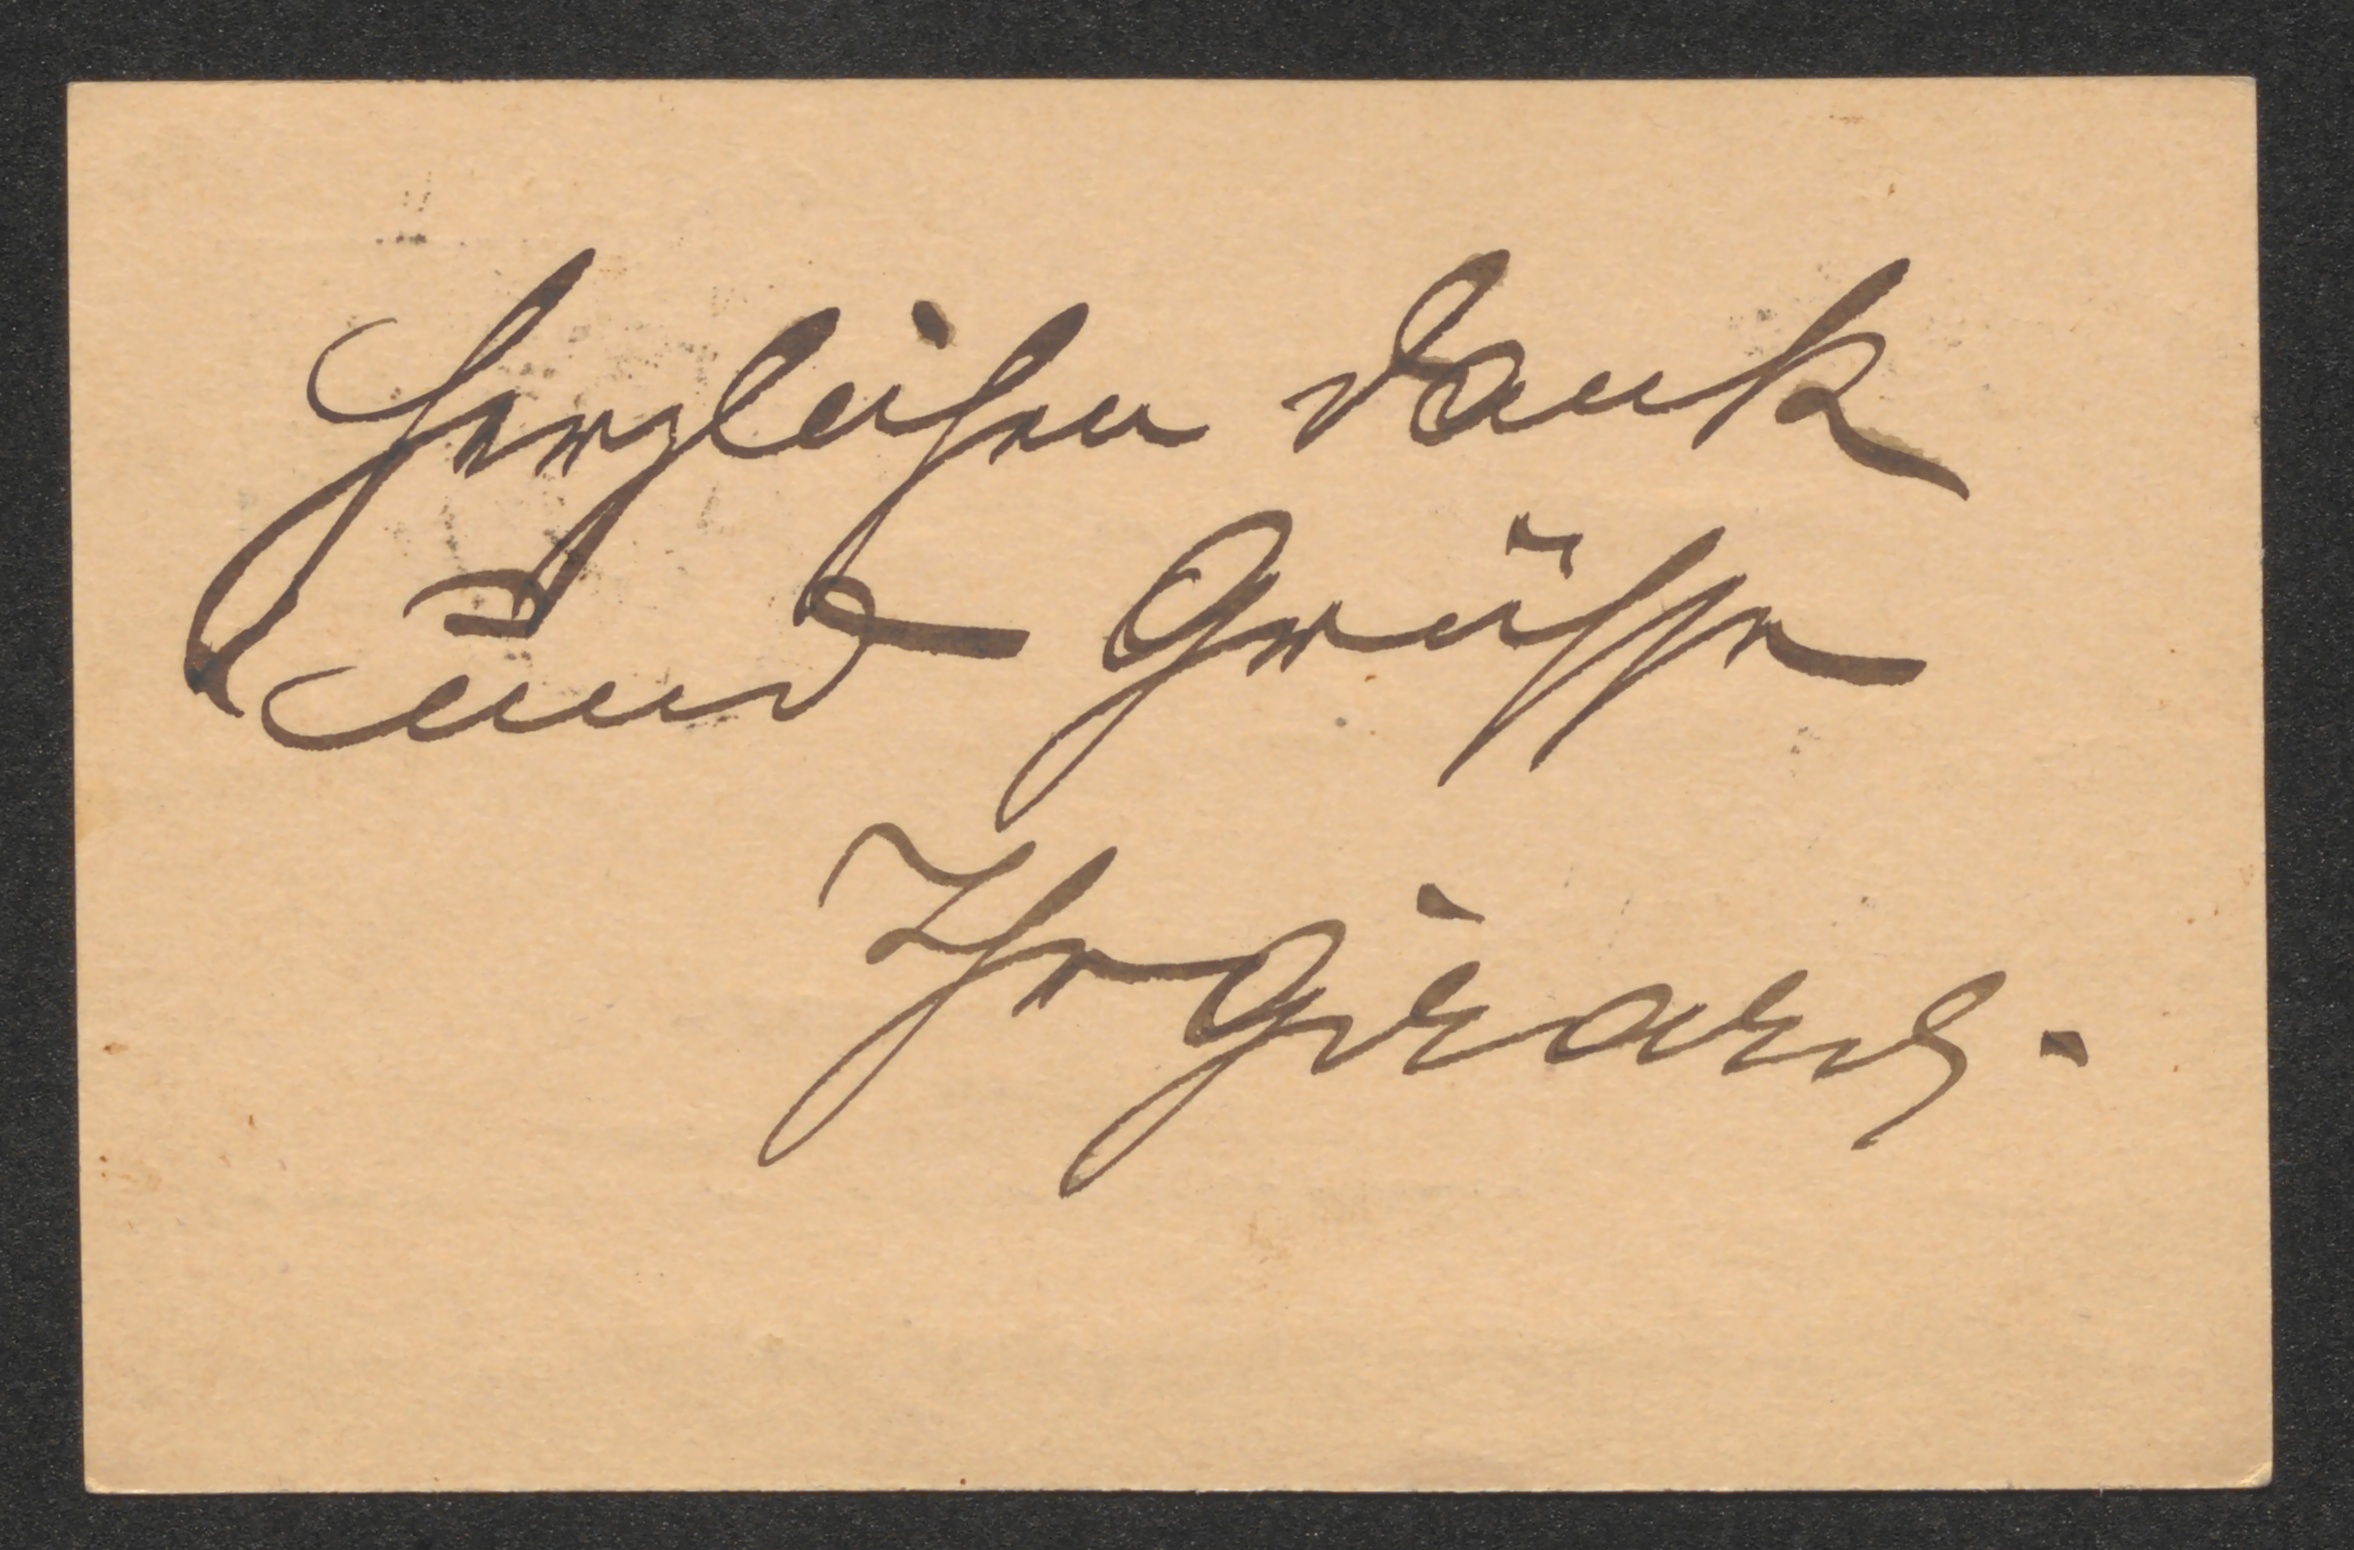 Herzlichen Dank
und Grüsse
Ihr Girardi.